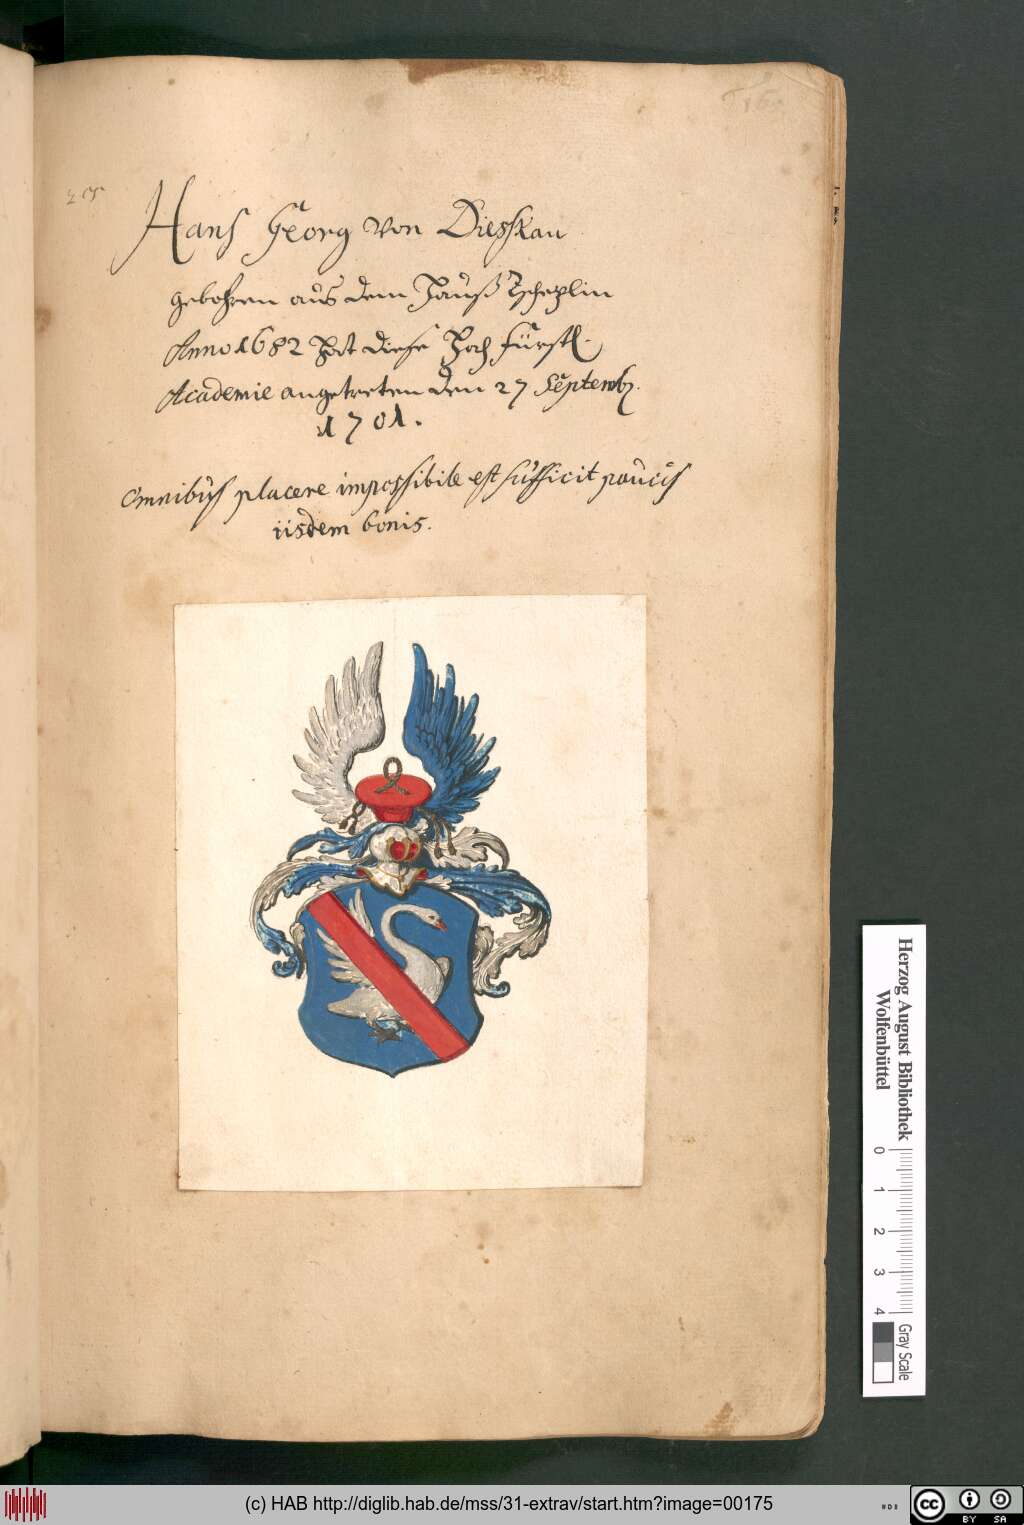 Hans Georg von Diesskau
gebohren aus dem Hauß Tscheplin
Anno 1682 hat diese Hoch fürstl.
Academie angetreten den 27 Septemb.
1701.
Omnibus placere impossibile est sufficit paucis
iisdem bonis.
Herzog August Bibliothek
Wolfenbüttel
0 1 2 3 4
Gray Scale
(c) HAB http://diglib.hab.de/mss/31-extrav/start.htm?image=00175
cc BY SA